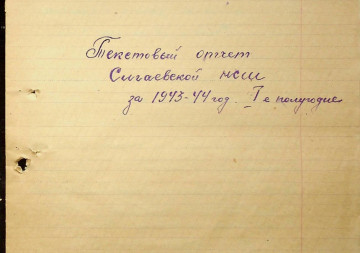 Текстовый отчет
Сигаевской нсш
за 1943-44 год. I е полугодие